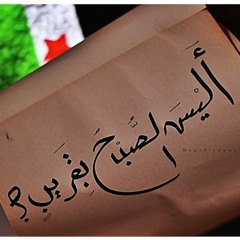 أَلَيْسَ الصُّبْحُ بِقَرِيبٍ؟